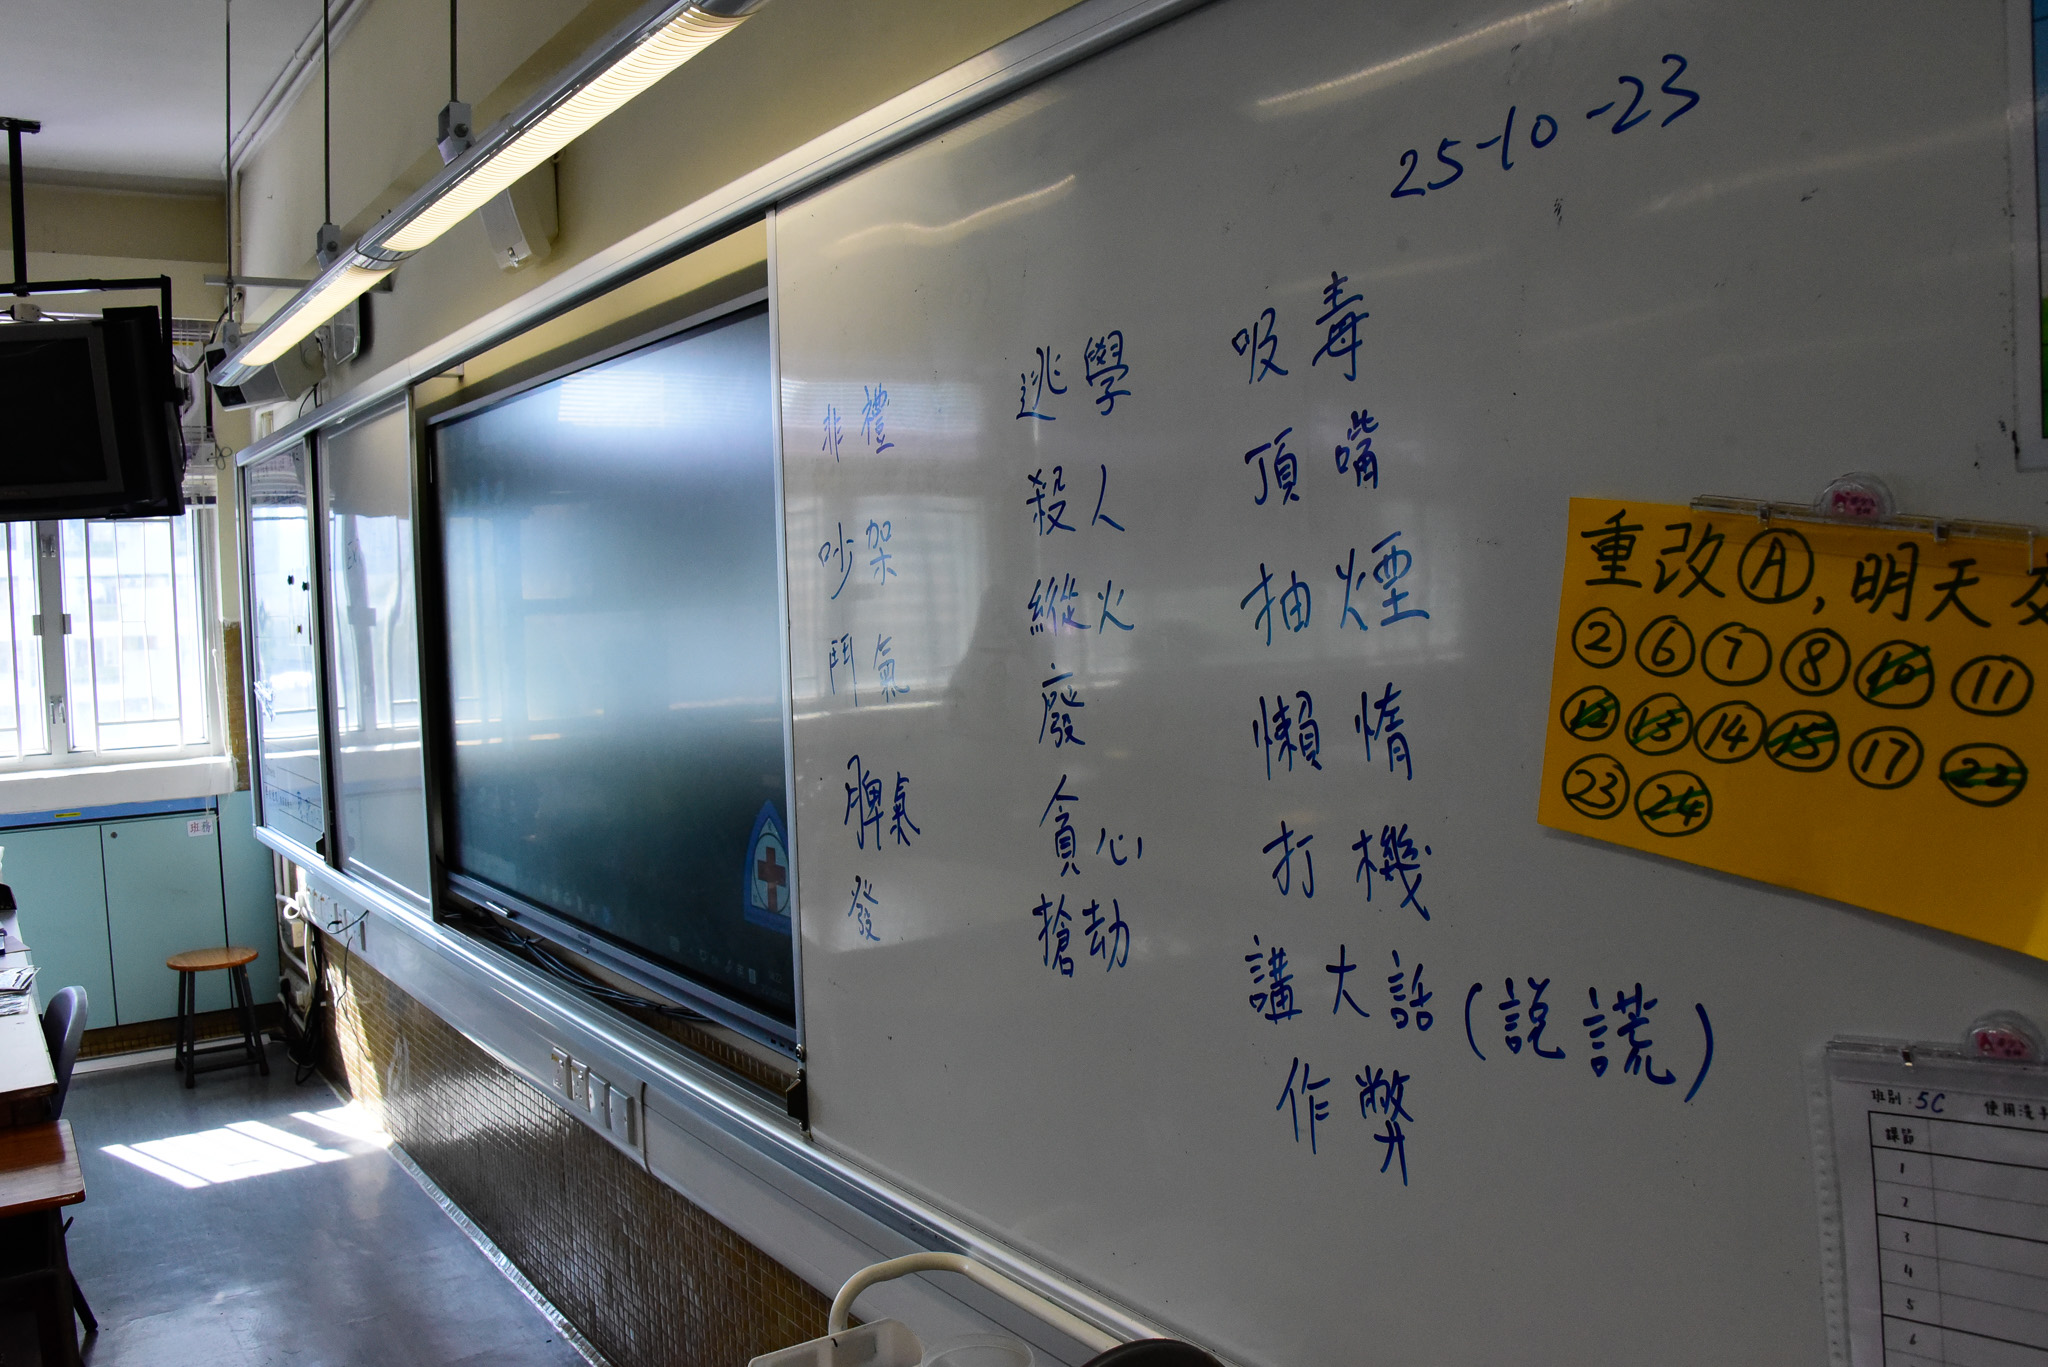 25-10-23
吸毒
頂嘴
抽煙
懶惰
打機
講大話(説謊)
作弊
逃學
殺人
縱火
廢
貪心
搶劫
非禮
吵架
鬥氣
脾氣
發
重改Ⓐ,明天交
② ⑥ ⑦ ⑧ ⑩ ⑪
⑫ ⑬ ⑭ ⑮ ⑰ ㉒
㉓ ㉔
班別:5C 使用洗手
課節
1
2
3
4
5
6
班務